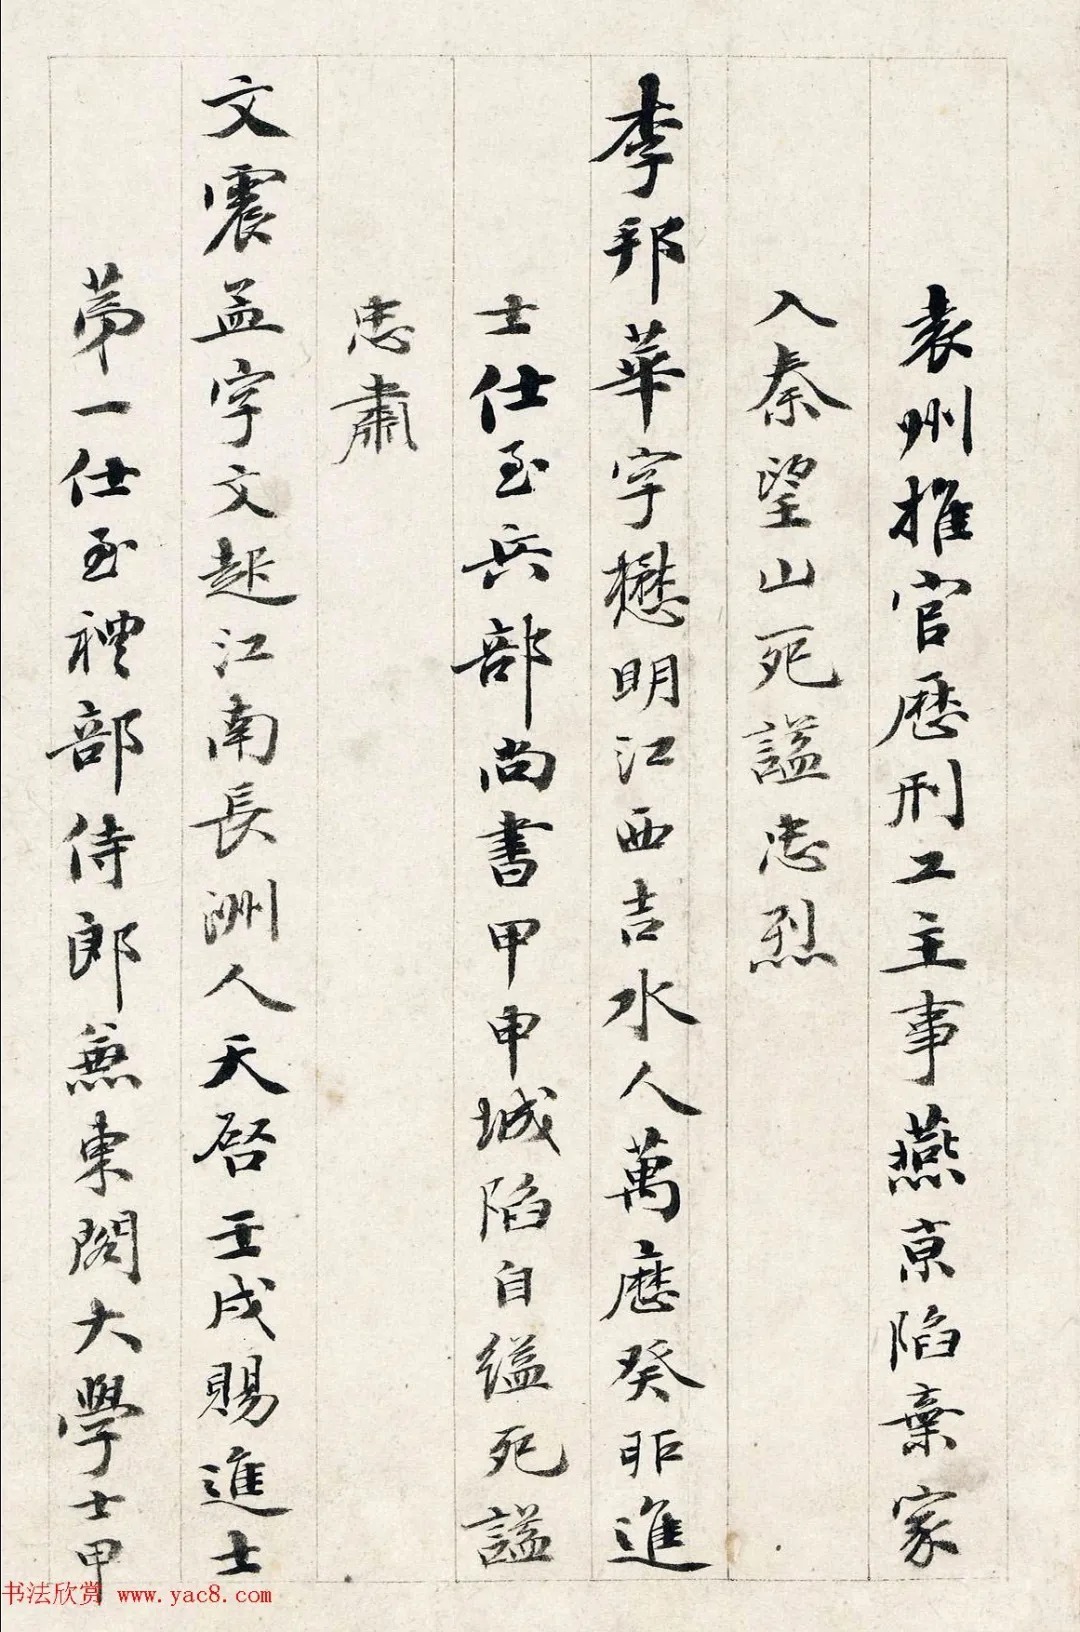 袁州推官歷刑工主事燕京陷棄家
入秦望山死謚忠烈
李邦華字懋明江西吉水人萬歷癸卯進
士仕至兵部尚書甲申城陷自縊死謚
忠肅
文震孟字文起江南長洲人天啓壬戌賜進士
第一仕至禮部侍郎兼東閣大學士甲
书法欣赏 www.yac8.com